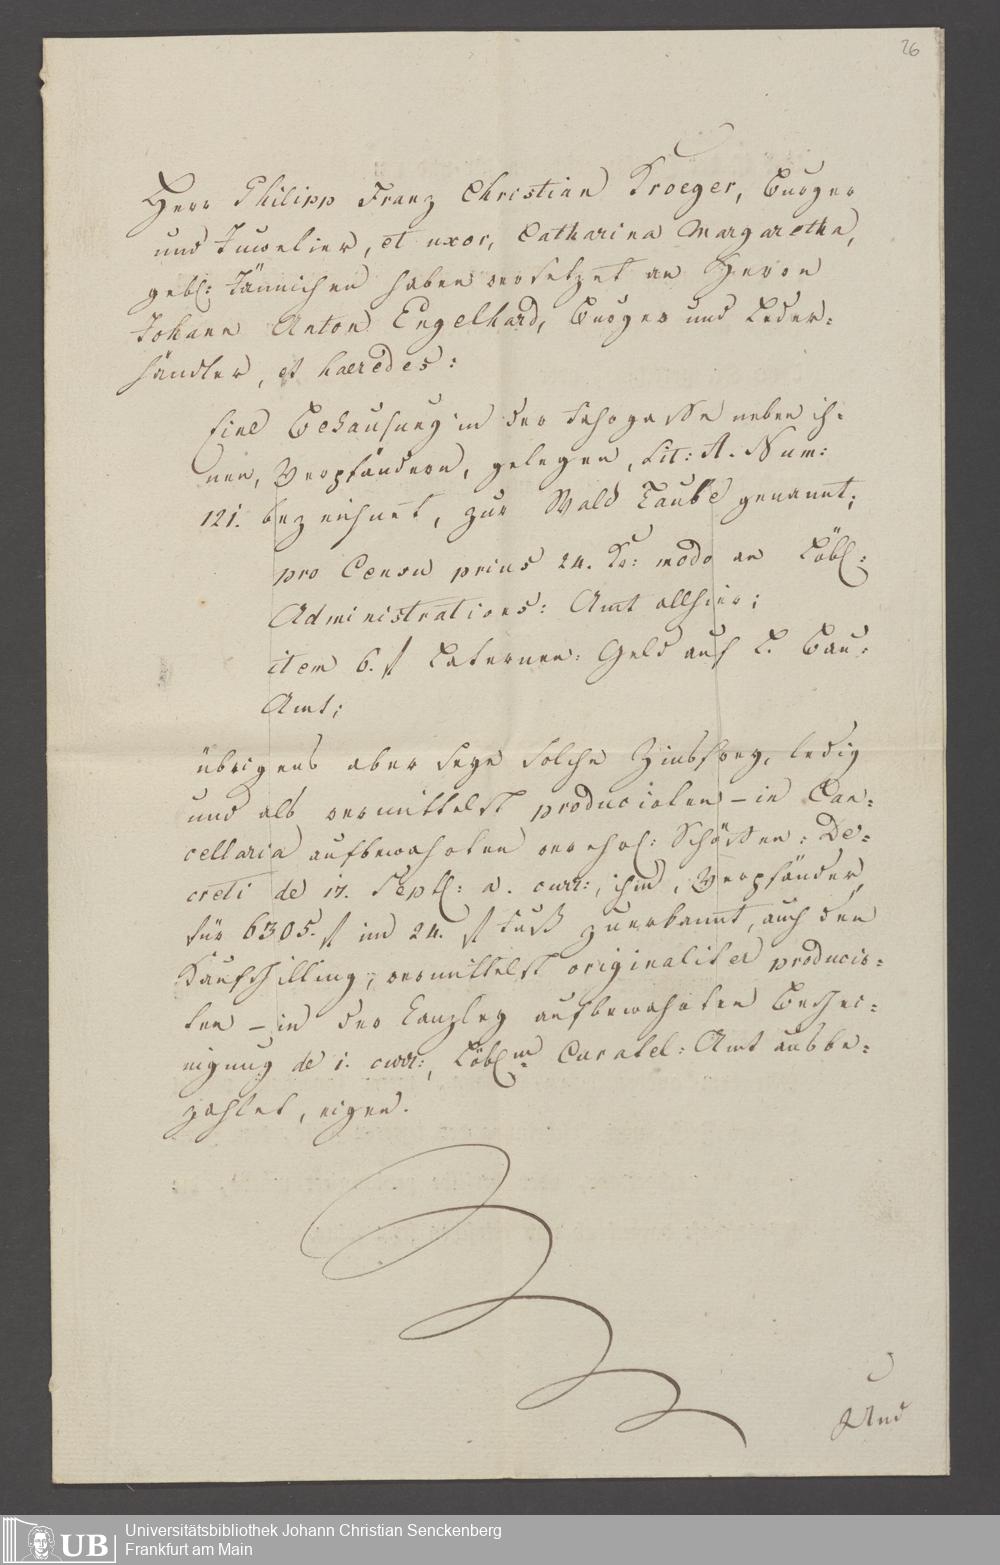 26
Herr Philipp Franz Christian Kroeger, Burger
und Juwelier, et uxor, Catharina Margaretha,
gebl: Jännichen haben versetzet an Herrn
Johann Anton Engelhard, Burger und Leder-
händler, et haeredes:
Eine Behausung in der Fahrgasse neben ih-
nen, Verpfändern, gelegen, Lit: A. Num:
121. bezeichnet, zur Wald Taube genannt;
pro Censu prius 24. Kr: modo an Löbl:
Administrations: Amt allhier;
item 6. f Laternen: Geld auf L. Bau-
Amt;
übrigens aber seye solche Zinsfrey, ledig
und als vermittelst producirten – in Can-
cellaria aufbewahrten verehrl: Schöffen: De-
creti de 17. Sept: a. curr:, ihm, Verpfänder,
für 6305. f im 24. f Fuß zuerkannt, auch den
Kaufschilling, vermittelst originaliter producir-
ten – in der Canzley aufbewahrten Beschei-
nigung de 1. curr:, Löbl:m Curatel: Amt ausbe-
zahlet, eigen.
Und
UB
Universitätsbibliothek Johann Christian Senckenberg
Frankfurt am Main